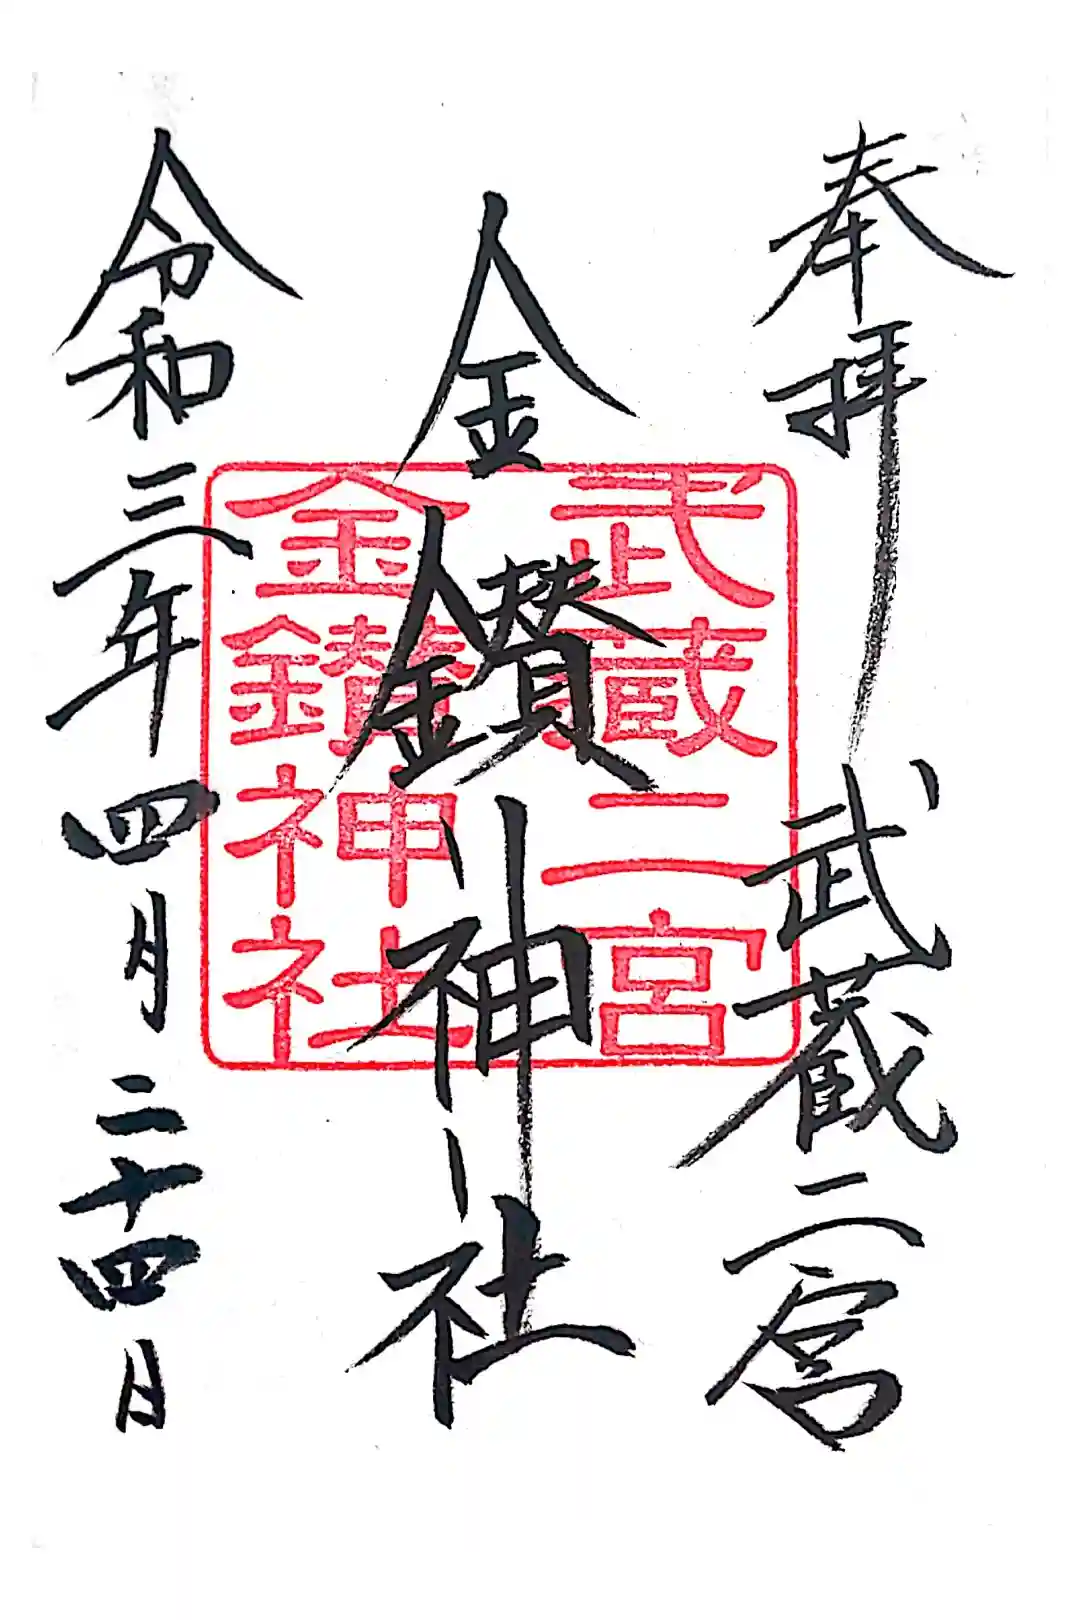 奉拝 武蔵二宮
金鑚神社
令和三年四月二十四日
武蔵二宮
金鑚神社